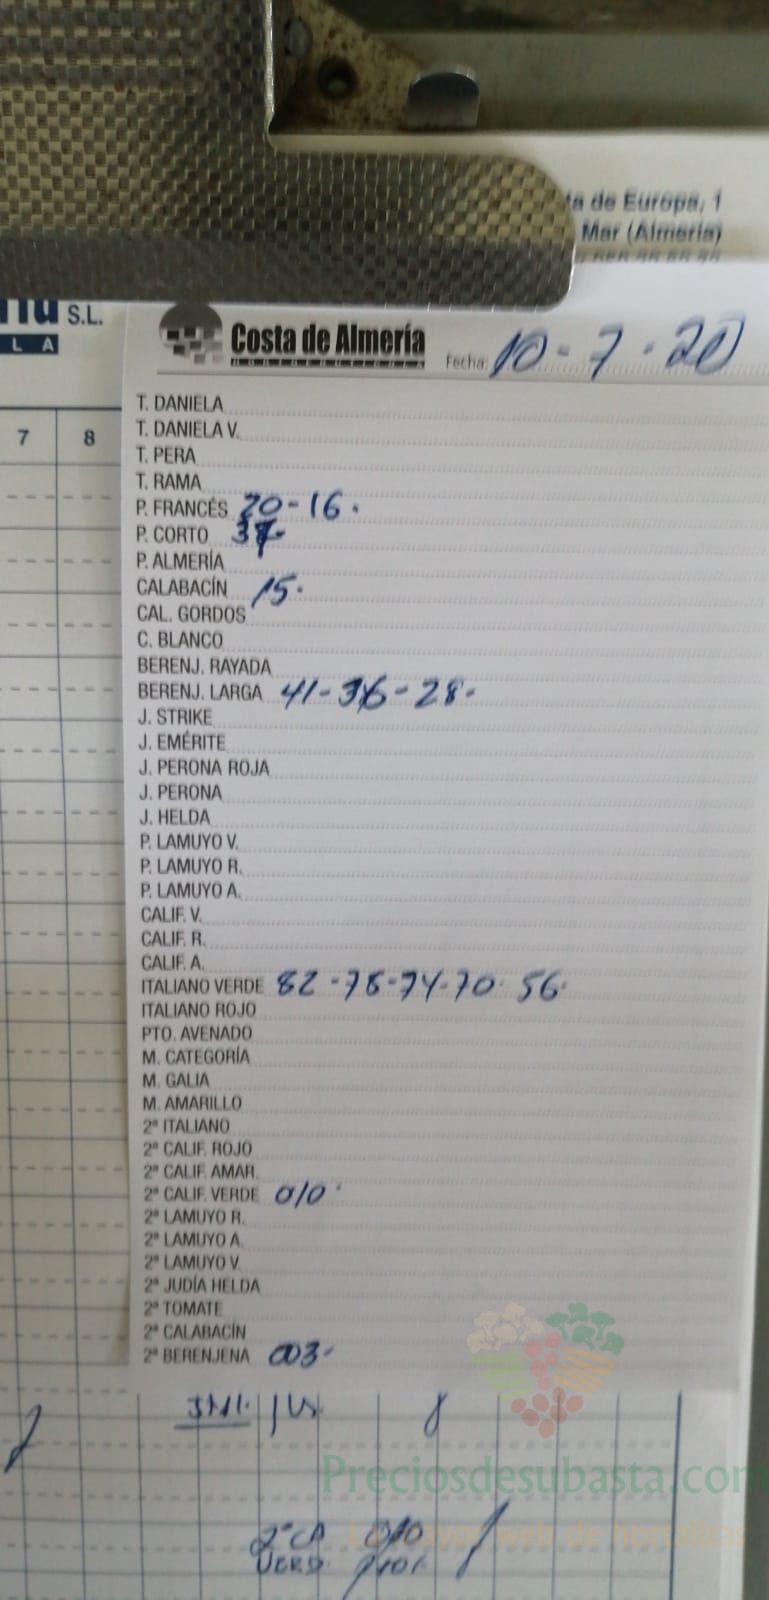 ta de Europa, 1
Mar (Almería)
S.L.
L A
Costa de Almería
Fecha: 10-7-20
7 8
T. DANIELA
T. DANIELA V.
T. PERA
T. RAMA
P. FRANCÉS 20-16.
P. CORTO
P. ALMERÍA
CALABACÍN 15.
CAL. GORDOS
C. BLANCO
BERENJ. RAYADA
BERENJ. LARGA 41-36-28-
J. STRIKE
J. EMÉRITE
J. PERONA ROJA
J. PERONA
J. HELDA
P. LAMUYO V.
P. LAMUYO R.
P. LAMUYO A.
CALIF. V.
CALIF. R.
CALIF. A.
ITALIANO VERDE 82-78-74-70-56.
ITALIANO ROJO
PTO. AVENADO
M. CATEGORÍA
M. GALIA
M. AMARILLO
2ª ITALIANO
2ª CALIF. ROJO
2ª CALIF. AMAR.
2ª CALIF. VERDE 010.
2ª LAMUYO R.
2ª LAMUYO A.
2ª LAMUYO V.
2ª JUDÍA HELDA
2ª TOMATE
2ª CALABACÍN
2ª BERENJENA 003-
Preciosdesubasta.com
web de hortalizas